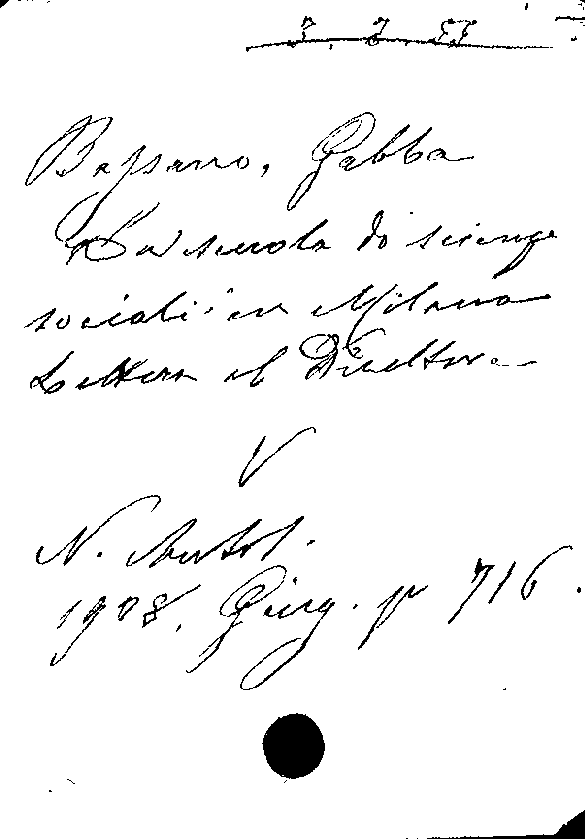 3. 2. 55
Bassano, Gabba
La scuola di scienze
sociali in Milano
Lettera al Direttore
V
N. Antol.
1908. Giug. p 716.